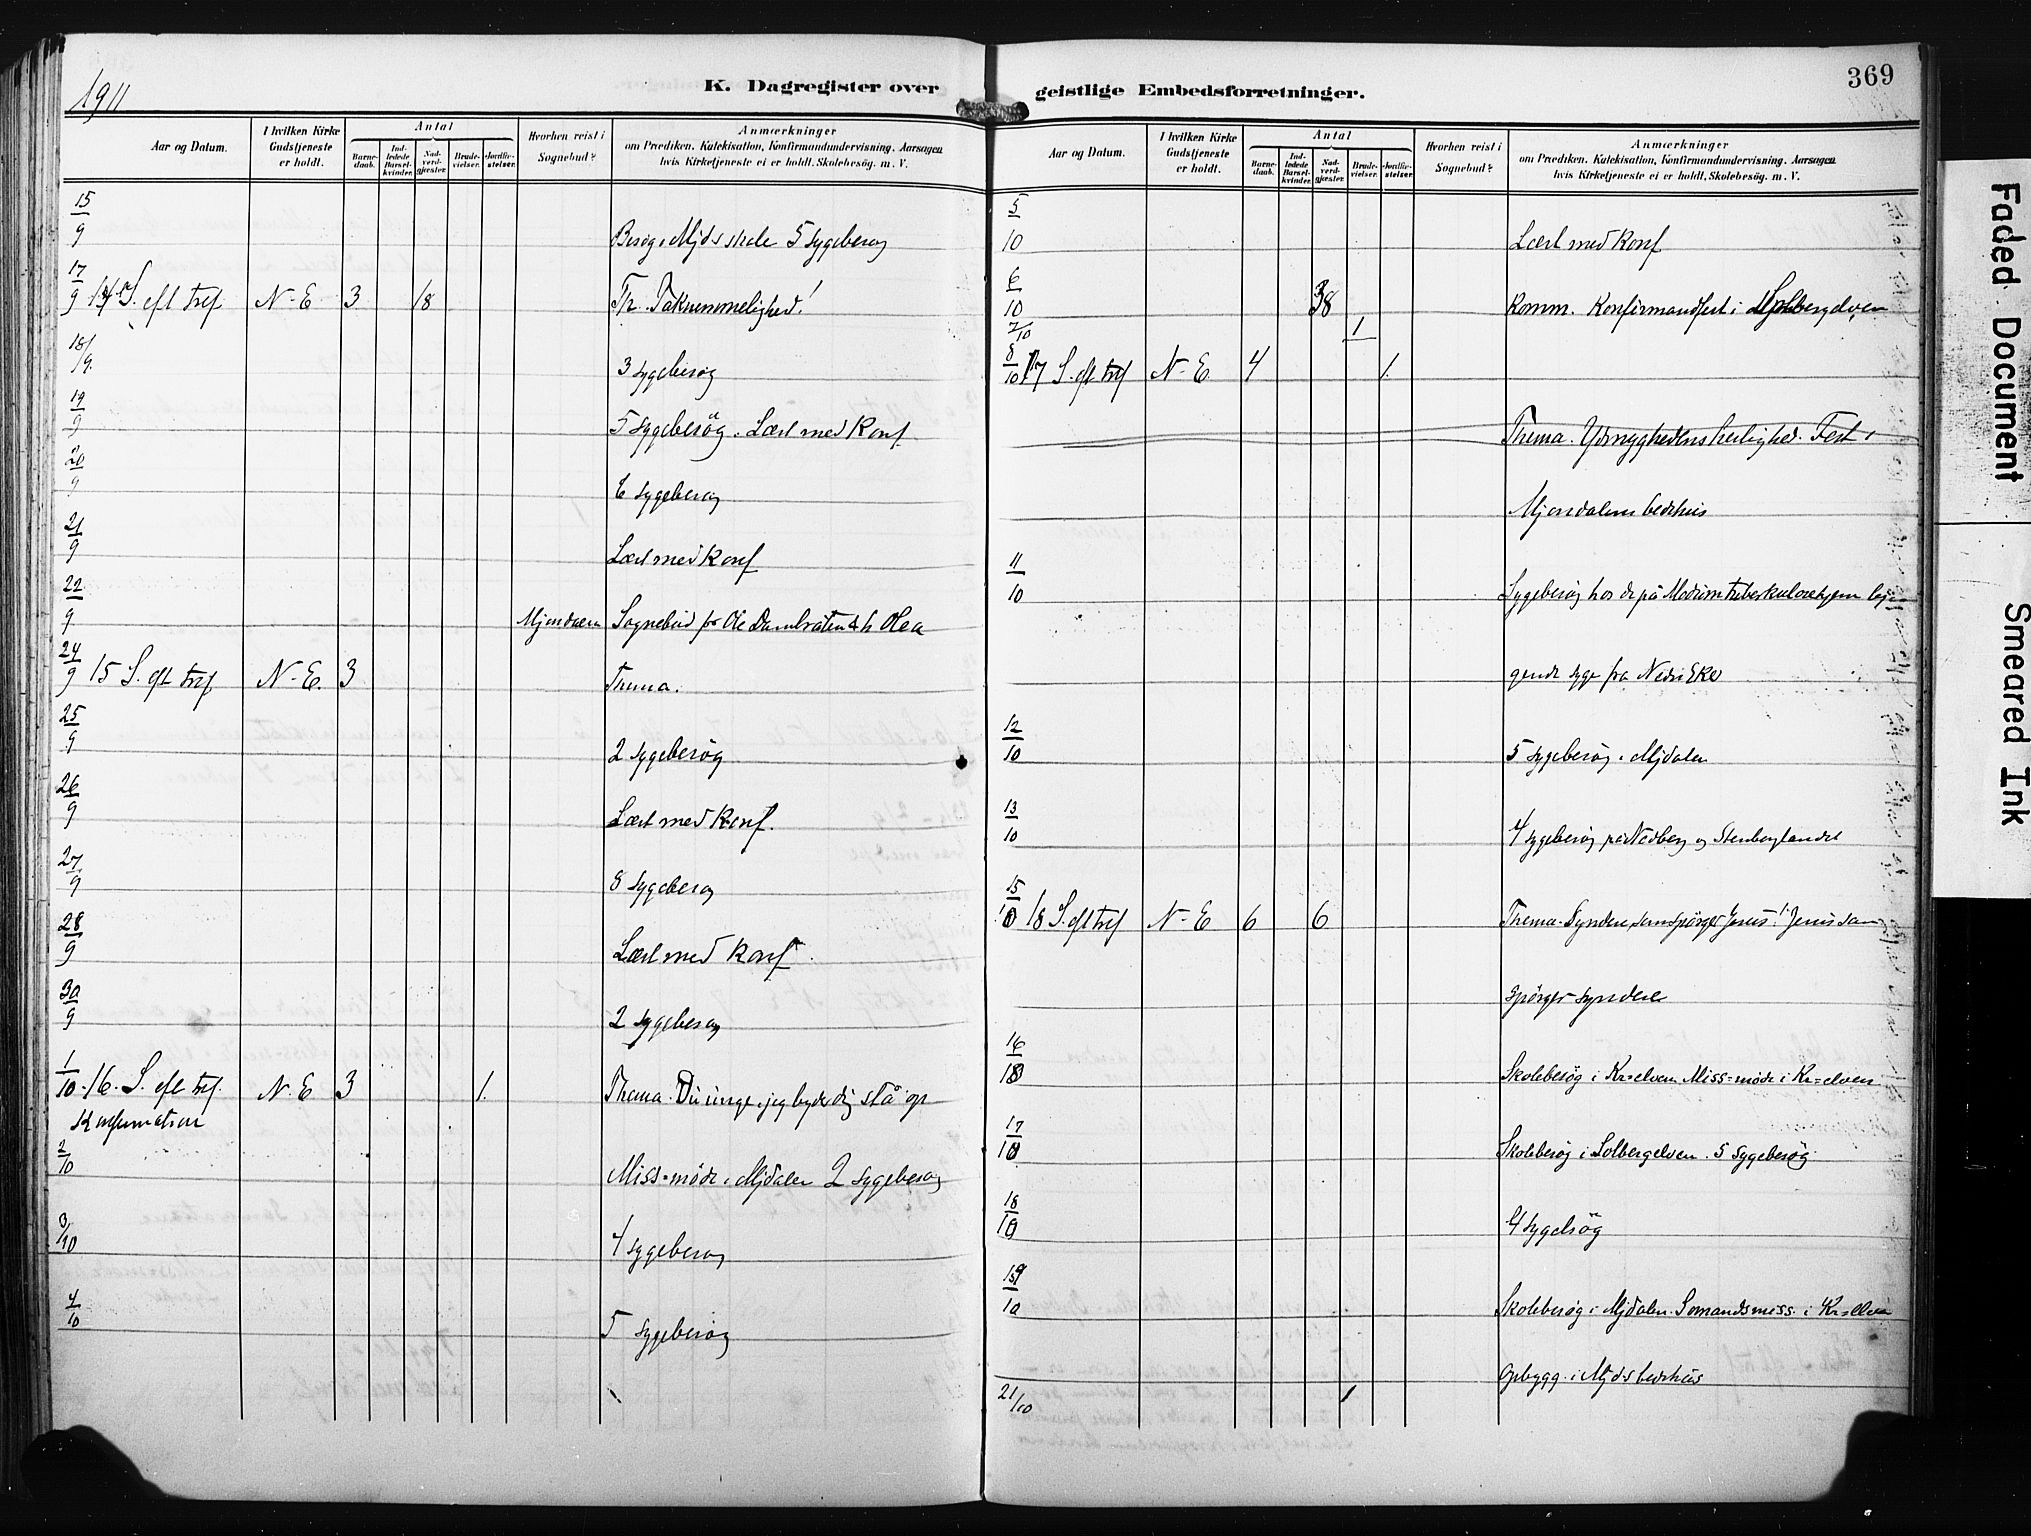 1911
K. Dagregister over
Aar og Datum.
I hvilken Kirke Gudstjeneste er holdt.
Antal
Barnedaab.
Indledede Barselkvinder.
Nadverdgjæster.
Brudevielser.
Jordfæstelser.
Hvorhen reist i Sognebud?
Anmærkninger
om Prædiken. Katekisation, Konfirmandundervisning. Aarsagen
hvis Kirketjeneste ei er holdt. Skolebesög. m. V.
15/9 Besög i Mjds skole 5 sygebesög
17/9 14 S. eft tref N-E 3 18 Th. Taknemmelighed!
18/9. 3 sygebesög
19/9 5 Sygebesög. Læst med Konf
20/9 6 sygebesög
21/9 Læst med Konf
22/9 Mjøndalen Sognebud for Ole h Olea
24/9 15 S. eft tref N-E. 3 Thema.
25/9 2 sygebesög
26/9 Læst med Konf.
27/9 8 sygebesög
28/9 Læst med Konf.
30/9 2 sygebesög
1/10 16. S. eft tref. N.E 3 1. Thema. Du unge, jeg byder dig stå op
Konfirmation
2/10 Miss=möde i Mjdalen 2 sygebesög
3/10 4 sygebesög
4/10 5 sygebesög
geistlige Embedsforretninger.
369
Aar og Datum.
I hvilken Kirke Gudstjeneste er holdt.
Antal
Barnedaab.
Indledede Barselkvinder.
Nadverdgjæster.
Brudevielser.
Jordfæstelser.
Hvorhen reist i Sognebud?
Anmærkninger
om Prædiken. Katekisation, Konfirmandundervisning. Aarsagen
hvis Kirketjeneste ei er holdt, Skolebesög. m. V.
5/10 Læst med Konf
6/10 38 Komm. Konfirmandfest i
7/10 1
8/10 17 S. eft tref N-E 4 1.
Thema. Ydmyghedens herlighed. Fest i
Mjøndalens bedehus
11/10 Sygebesög hos de på Modum tuberkulosehjem
gende syge fra Nedre Eker
12/10 5 sygebesög i Mjdalen
13/10 4 sygebesög på Nedberg og Stenberglandet
15/10 18 S. eft tref N-E 6 6 Thema. Syndere, som spörger Jesus! Jesus som
spörger syndere
16/10 Skolebesög i Kr=elven Miss=möde i Kr=elven
17/10 Skolebesög i Solbergelven. 5 sygebesög
18/10 4 sygebsög
19/10 Skolebesög i Mjdalen. Sömandsmiss. i Kr=elven
Opbygg. i Mjds bedehus
21/10 1
Faded Document
Smeared Ink